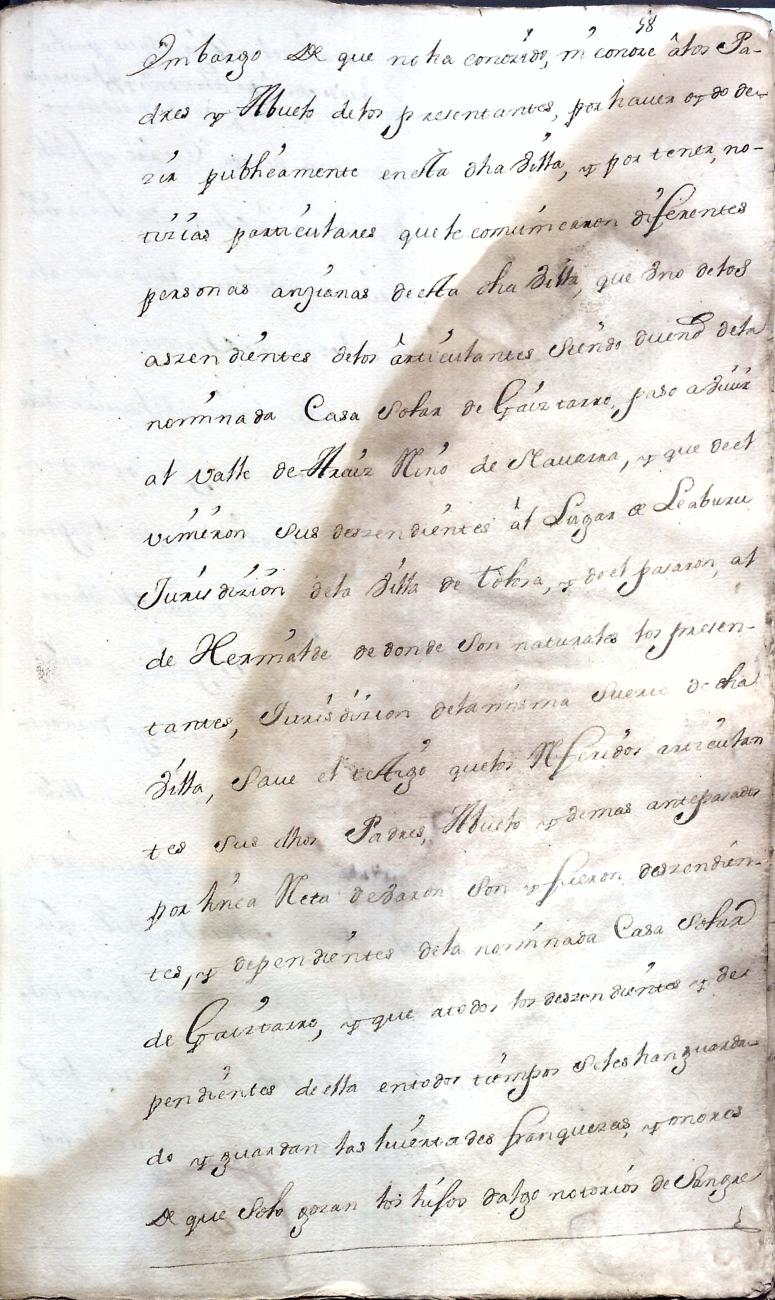 58
Imbargo De que no ha conozido, ni conoze â los Pa-
dres y Abuelo de los presentantes, por haver oydo de-
zir publicamente en esta dha Villa, y por tener, no-
tizias particulares que le comunicaron diferentes
personas anzianas de esta dha Villa, que Uno de los
aszendientes de los ârticulantes siendo duend de la
nominada Casa Solar de Gaiztarro, paso a Viuir
al Valle de Araiz Reino de Nauarra, y que de el
vinieron sus deszendientes âl Lugar de Leaburu
Jurisdizion de la Villa de Tolosa, y de el pasaron, al
de Hernialde de donde son naturales los presen-
tantes, Jurisdizion de la misma suerte de dha
Villa, Saue el testigo que los Referidos articulan
tes sus dhos Padres, Abuelo y demas antepasados
por linea Reta de Varon son y fueron deszendien-
tes, y dependientes de la nominada Casa Solar
de Gaiztarro, y que a todos los deszendientes y de
pendientes de ella en todos tiempos se les han guarda-
do y guardan las liuertades franquezas, y onores
De que Solo gozan los hijos dalgo notorios de Sangre